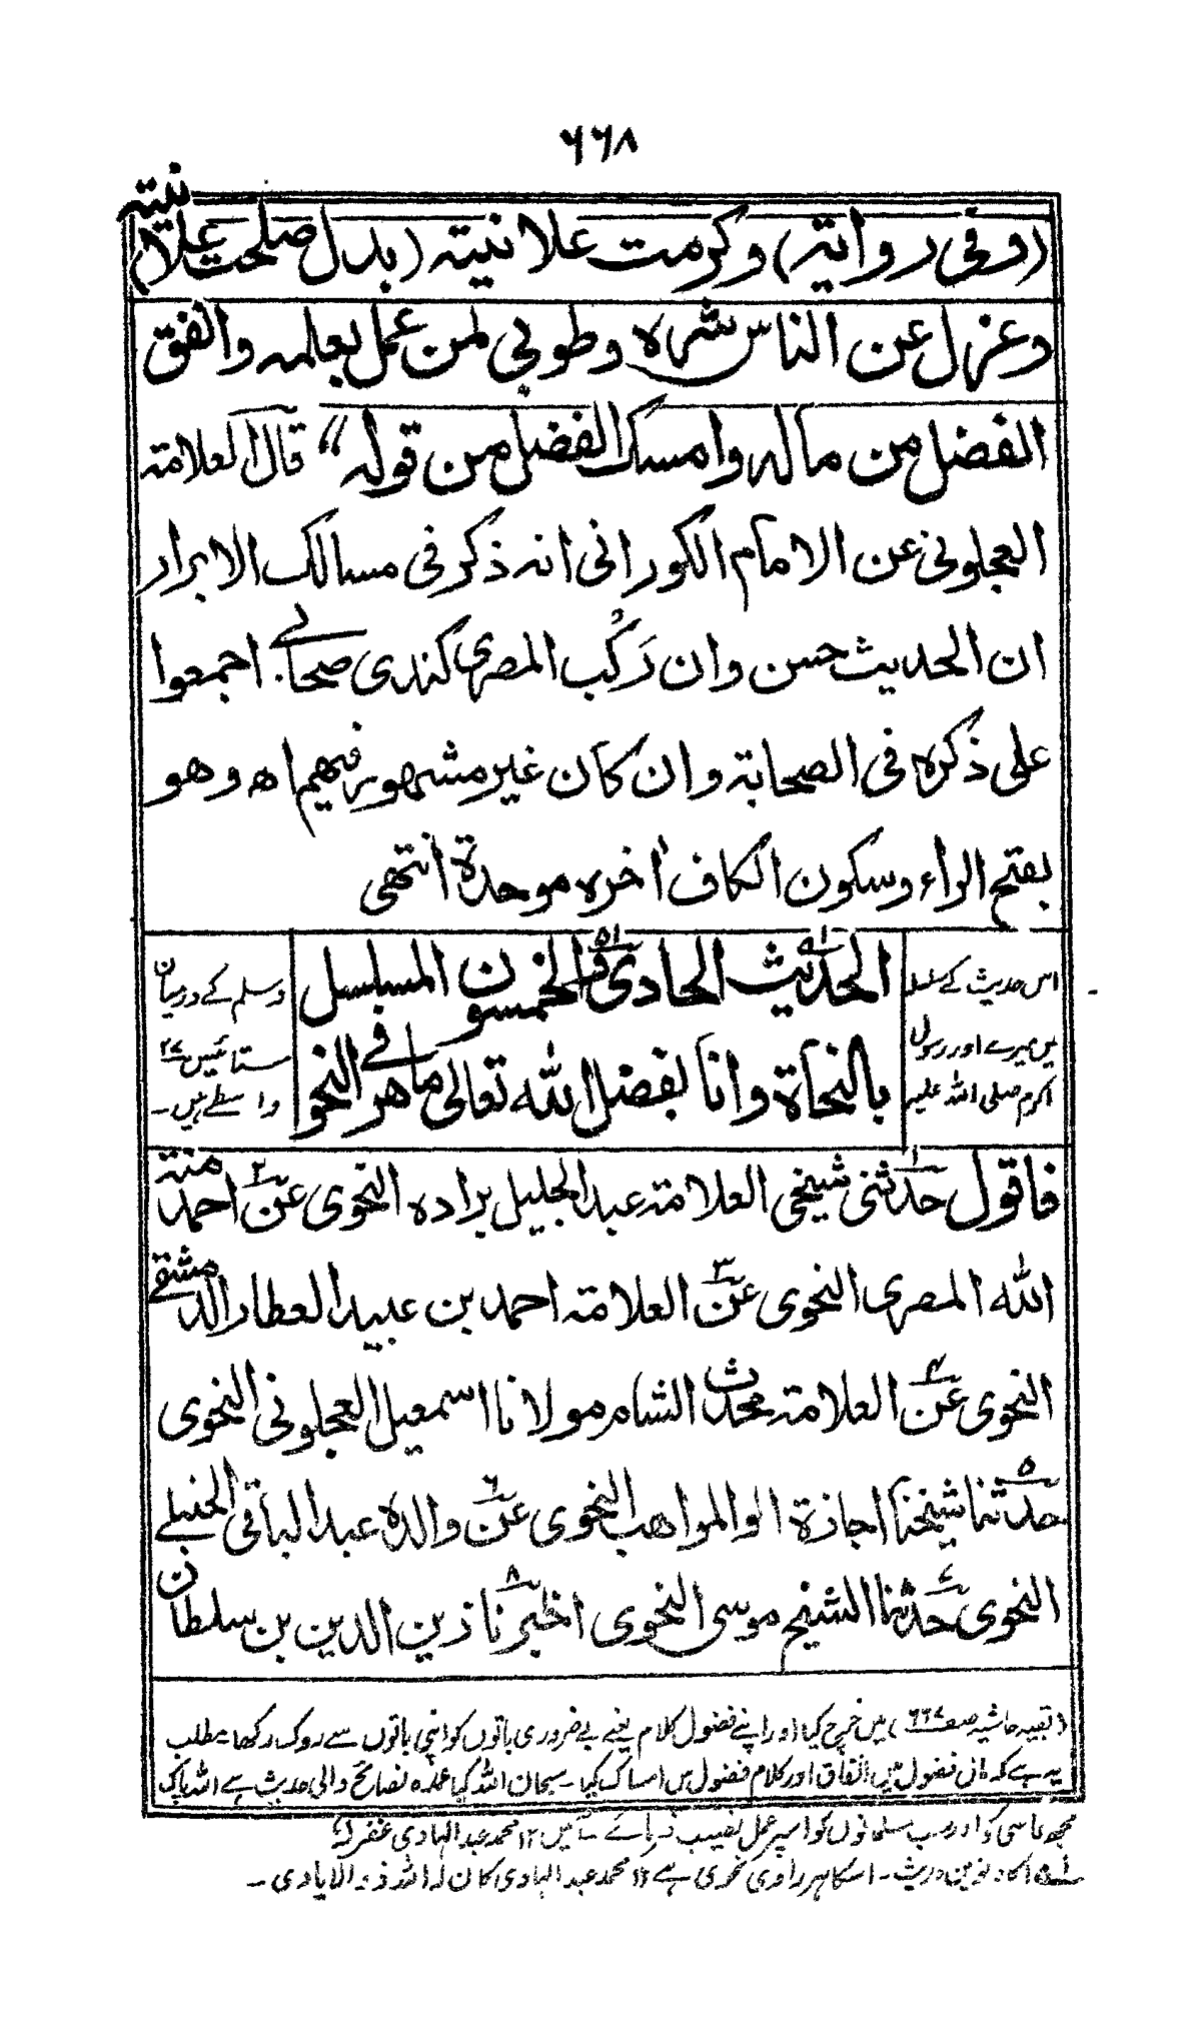 ۶۶۸
(وفی روایۃ) وکرمت علانیتہ (بدل صلحت علانیتہ
وعزل عن الناس شرہ وطوبی لمن عمل بعلمہ وانفق
الفضل من مالہ وامسک الفضل من قولہ" قال العلامۃ
العجلونی عن الامام الکورانی انہ ذکر فی مسالک الابرار
ان الحدیث حسن وان رَکْب المصری کندی صحابی اجمعوا
علی ذکرہ فی الصحابۃ وان کان غیر مشہور فیھم اھ وھو
بفتح الراء وسکون الکاف اٰخرہ موحدۃ انتھی
الحدیث الحادی والخمسون المسلسل ۵۱
بالنحاۃ وانا بفضل اللہ تعالی ماھر فی النحو
اس حدیث کے سلسلہ
میں میرے اور رسول
اکرم صلی اللہ علیہ
وسلم کے درمیان
ستائیس ۲۷
واسطے ہیں۔
فاقول حدثنی ۱ شیخی العلامۃ عبد الجلیل برادہ النحوی عن ۲ احمد منۃ
اللہ المصری النحوی عن ۳ العلامۃ احمد بن عبید العطار الدمشقی
النحوی عن ۴ العلامۃ محدث الشام مولانا اسمعیل العجلونی النحوی
حدثنا ۵ شیخنا اجازۃ ابو المواھب النحوی عن ۶ والدہ عبد الباقی الحنبلی
النحوی حدثنا ۷ الشیخ موسی النحوی اخبرنا ۸ زین الدین بن سلطان
(بقیہ حاشیہ صفحہ ۶۶۷) میں خرچ کیا اور اپنے فضول کلام یعنے بے ضروری باتوں کو اپنی باتوں سے روک رکھا۔ مطلب
یہ ہے کہ مال فضول میں انفاق اور کلام فضول میں امساک کیا۔ سبحان اللہ کیا عمدہ نصائح والی حدیث ہے اللہ پاک
مجھ عاصی کو اور سب مسلمانوں کو اسپر عمل نصیب فرمائے آمیں ۱۲ محمد عبد الہادی غفر لہ
۵۱ اکاونویں حدیث۔ اسکا ہر راوی نحوی ہے ۱۲ محمد عبد الہادی کان لہ اللہ ذو الایادی۔